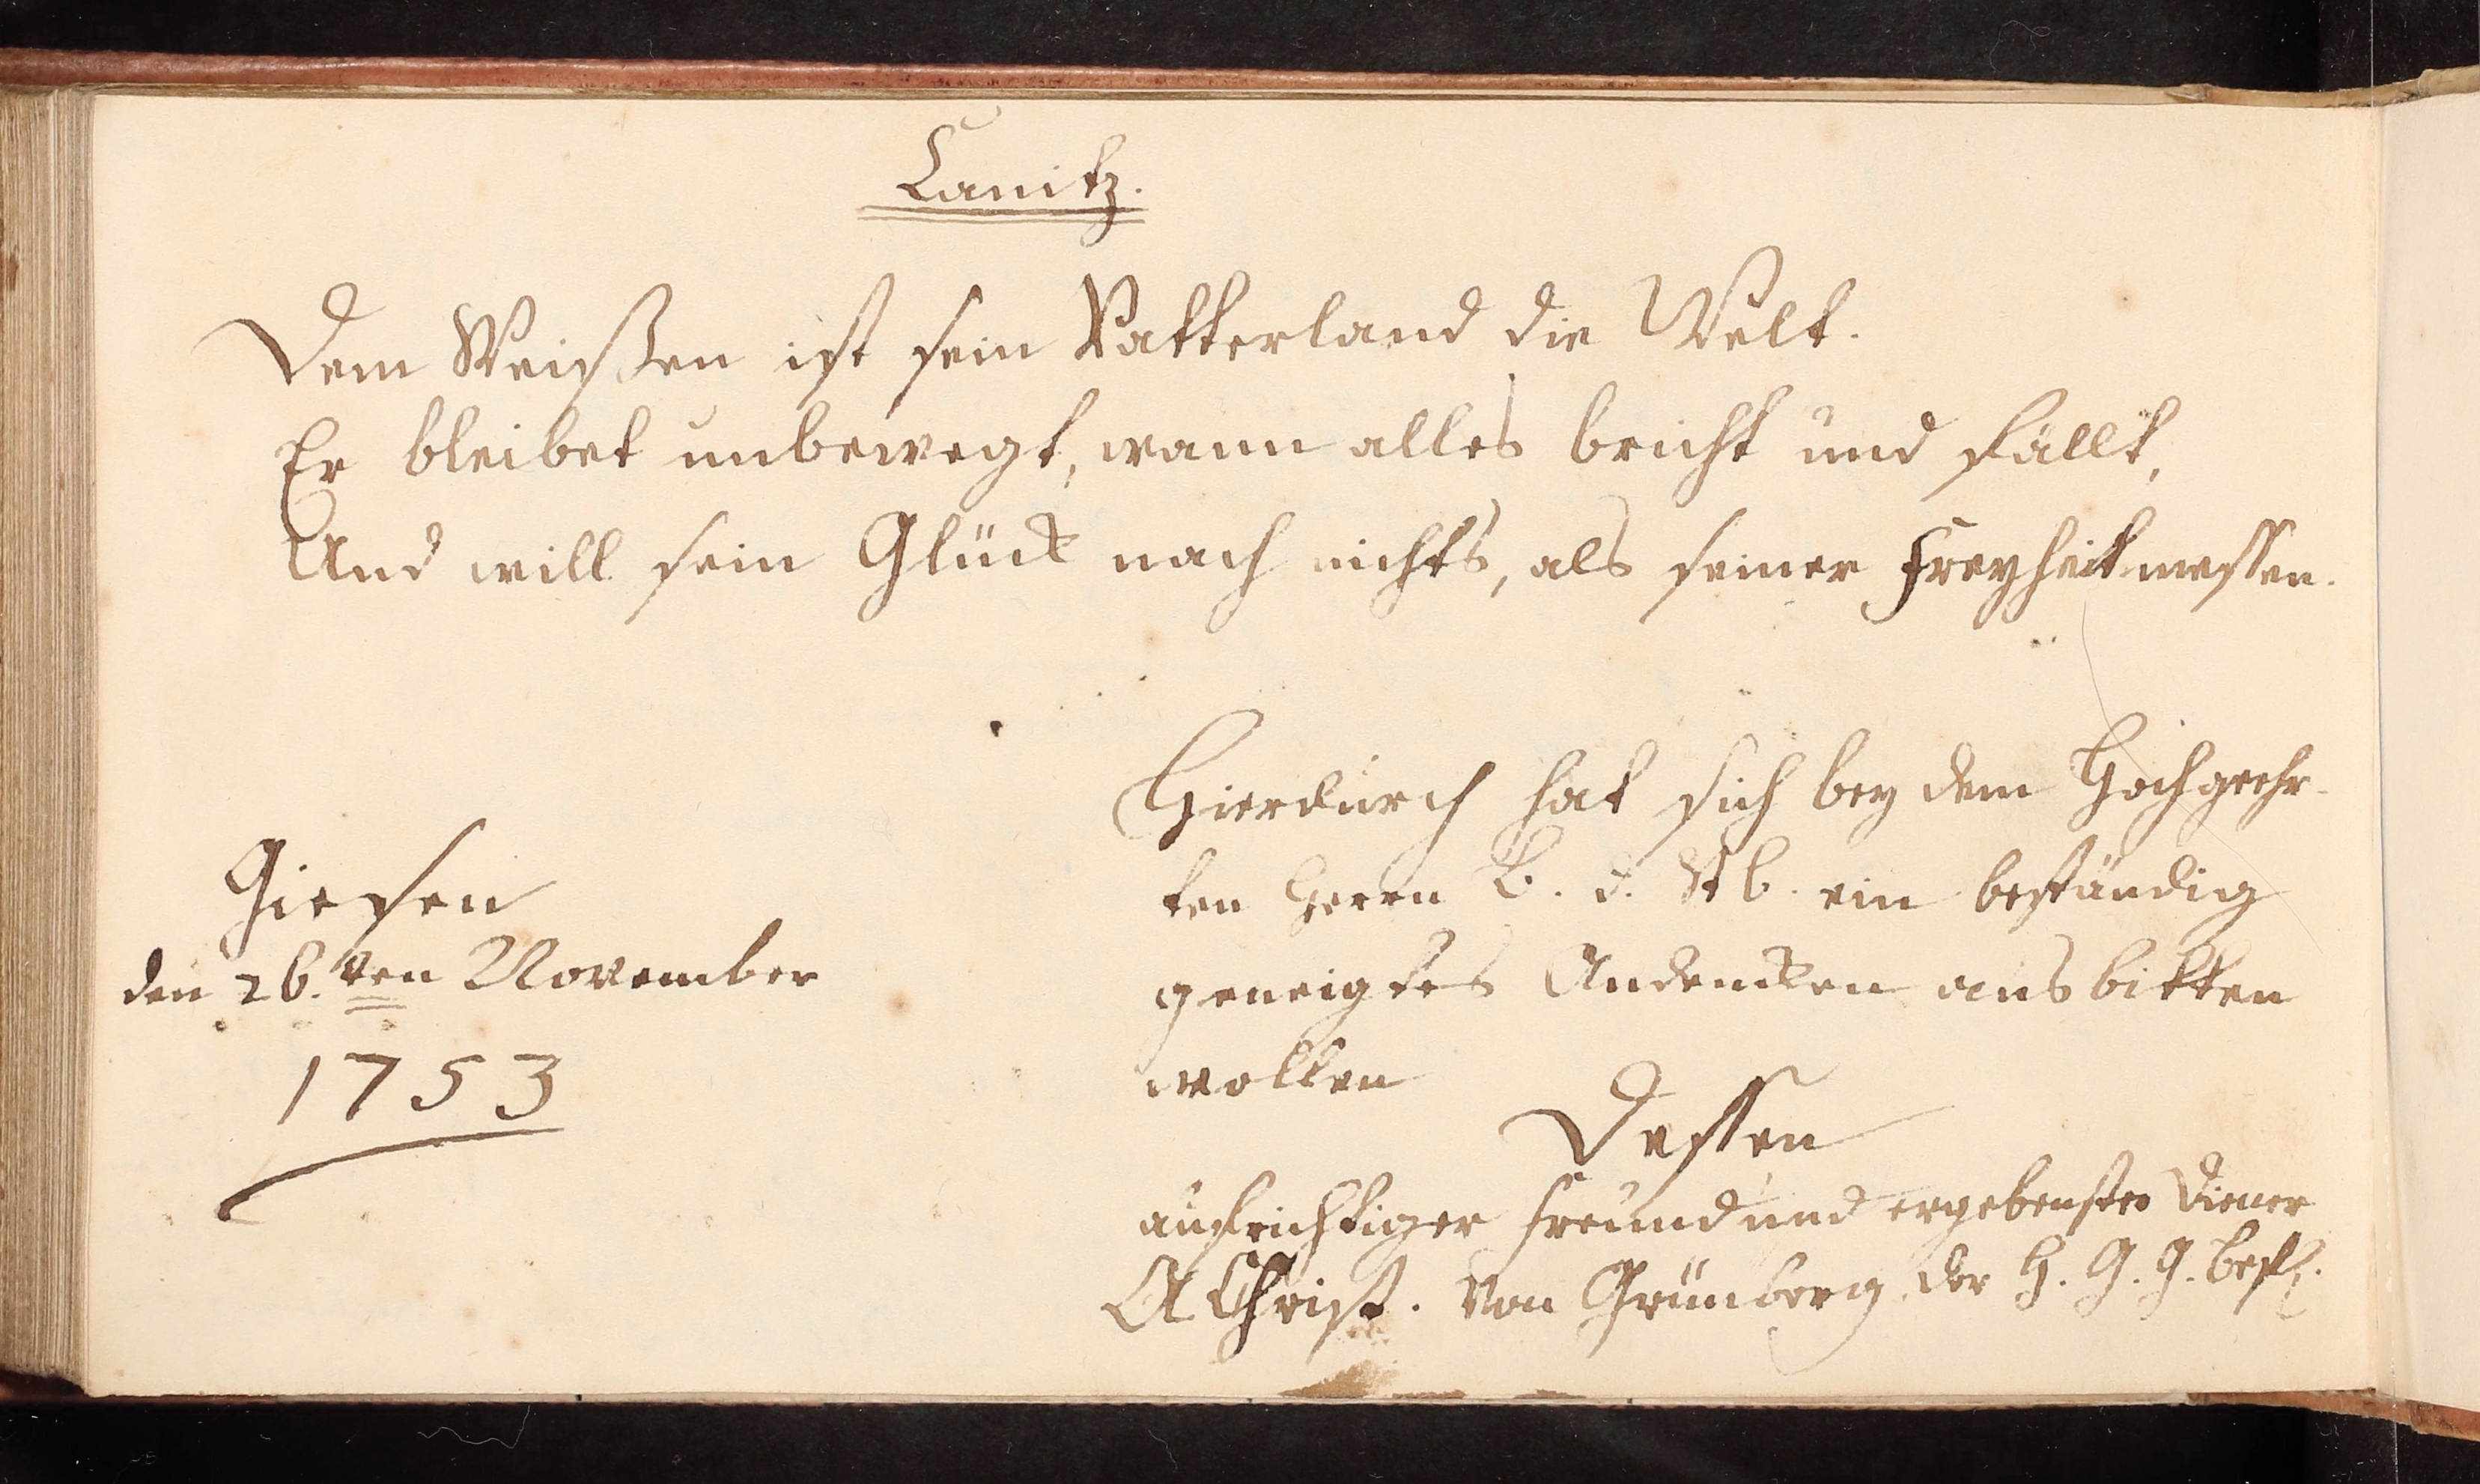 Canitz.
Dem Weisßen ist sein Vatterland die Welt.
Er bleibet unbewegt, wann alles bricht und fällt,
Und will sein Glück nach nichts, als seiner Freyheit messen.
Hierdurch hat sich bey dem Hochgeehr-
ten Herrn B. d. ein beständig
geneigtes Andencken ausbitten
wollen
Dessen
aufrichtiger freund und ergebenster Diener
A Christ. von Grünberg der H. G. G. befl.
Giesen
den 26.ten November
1753